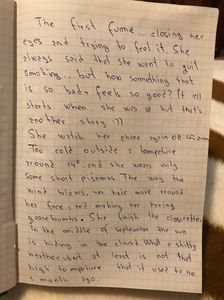 The first fume... closing her
eyes and trying to feel it. She
always said that she want to quit
smoking... but how something that
is so bad, feels so good? It all
starts when she was 18 but that's
another story :))
She watch her phone again 08:02 am
Too cold outside a tempeture
around 14° and she wears only
some short pijamas. The way the
wind blows, her hair move around
her face, and making her having
goosebumps. She finish the cigarette.
In the middle of september the sun
is hiding in the cloud. What a shitty
weather, at least is not that
high temprture that it used to be
a month ago.